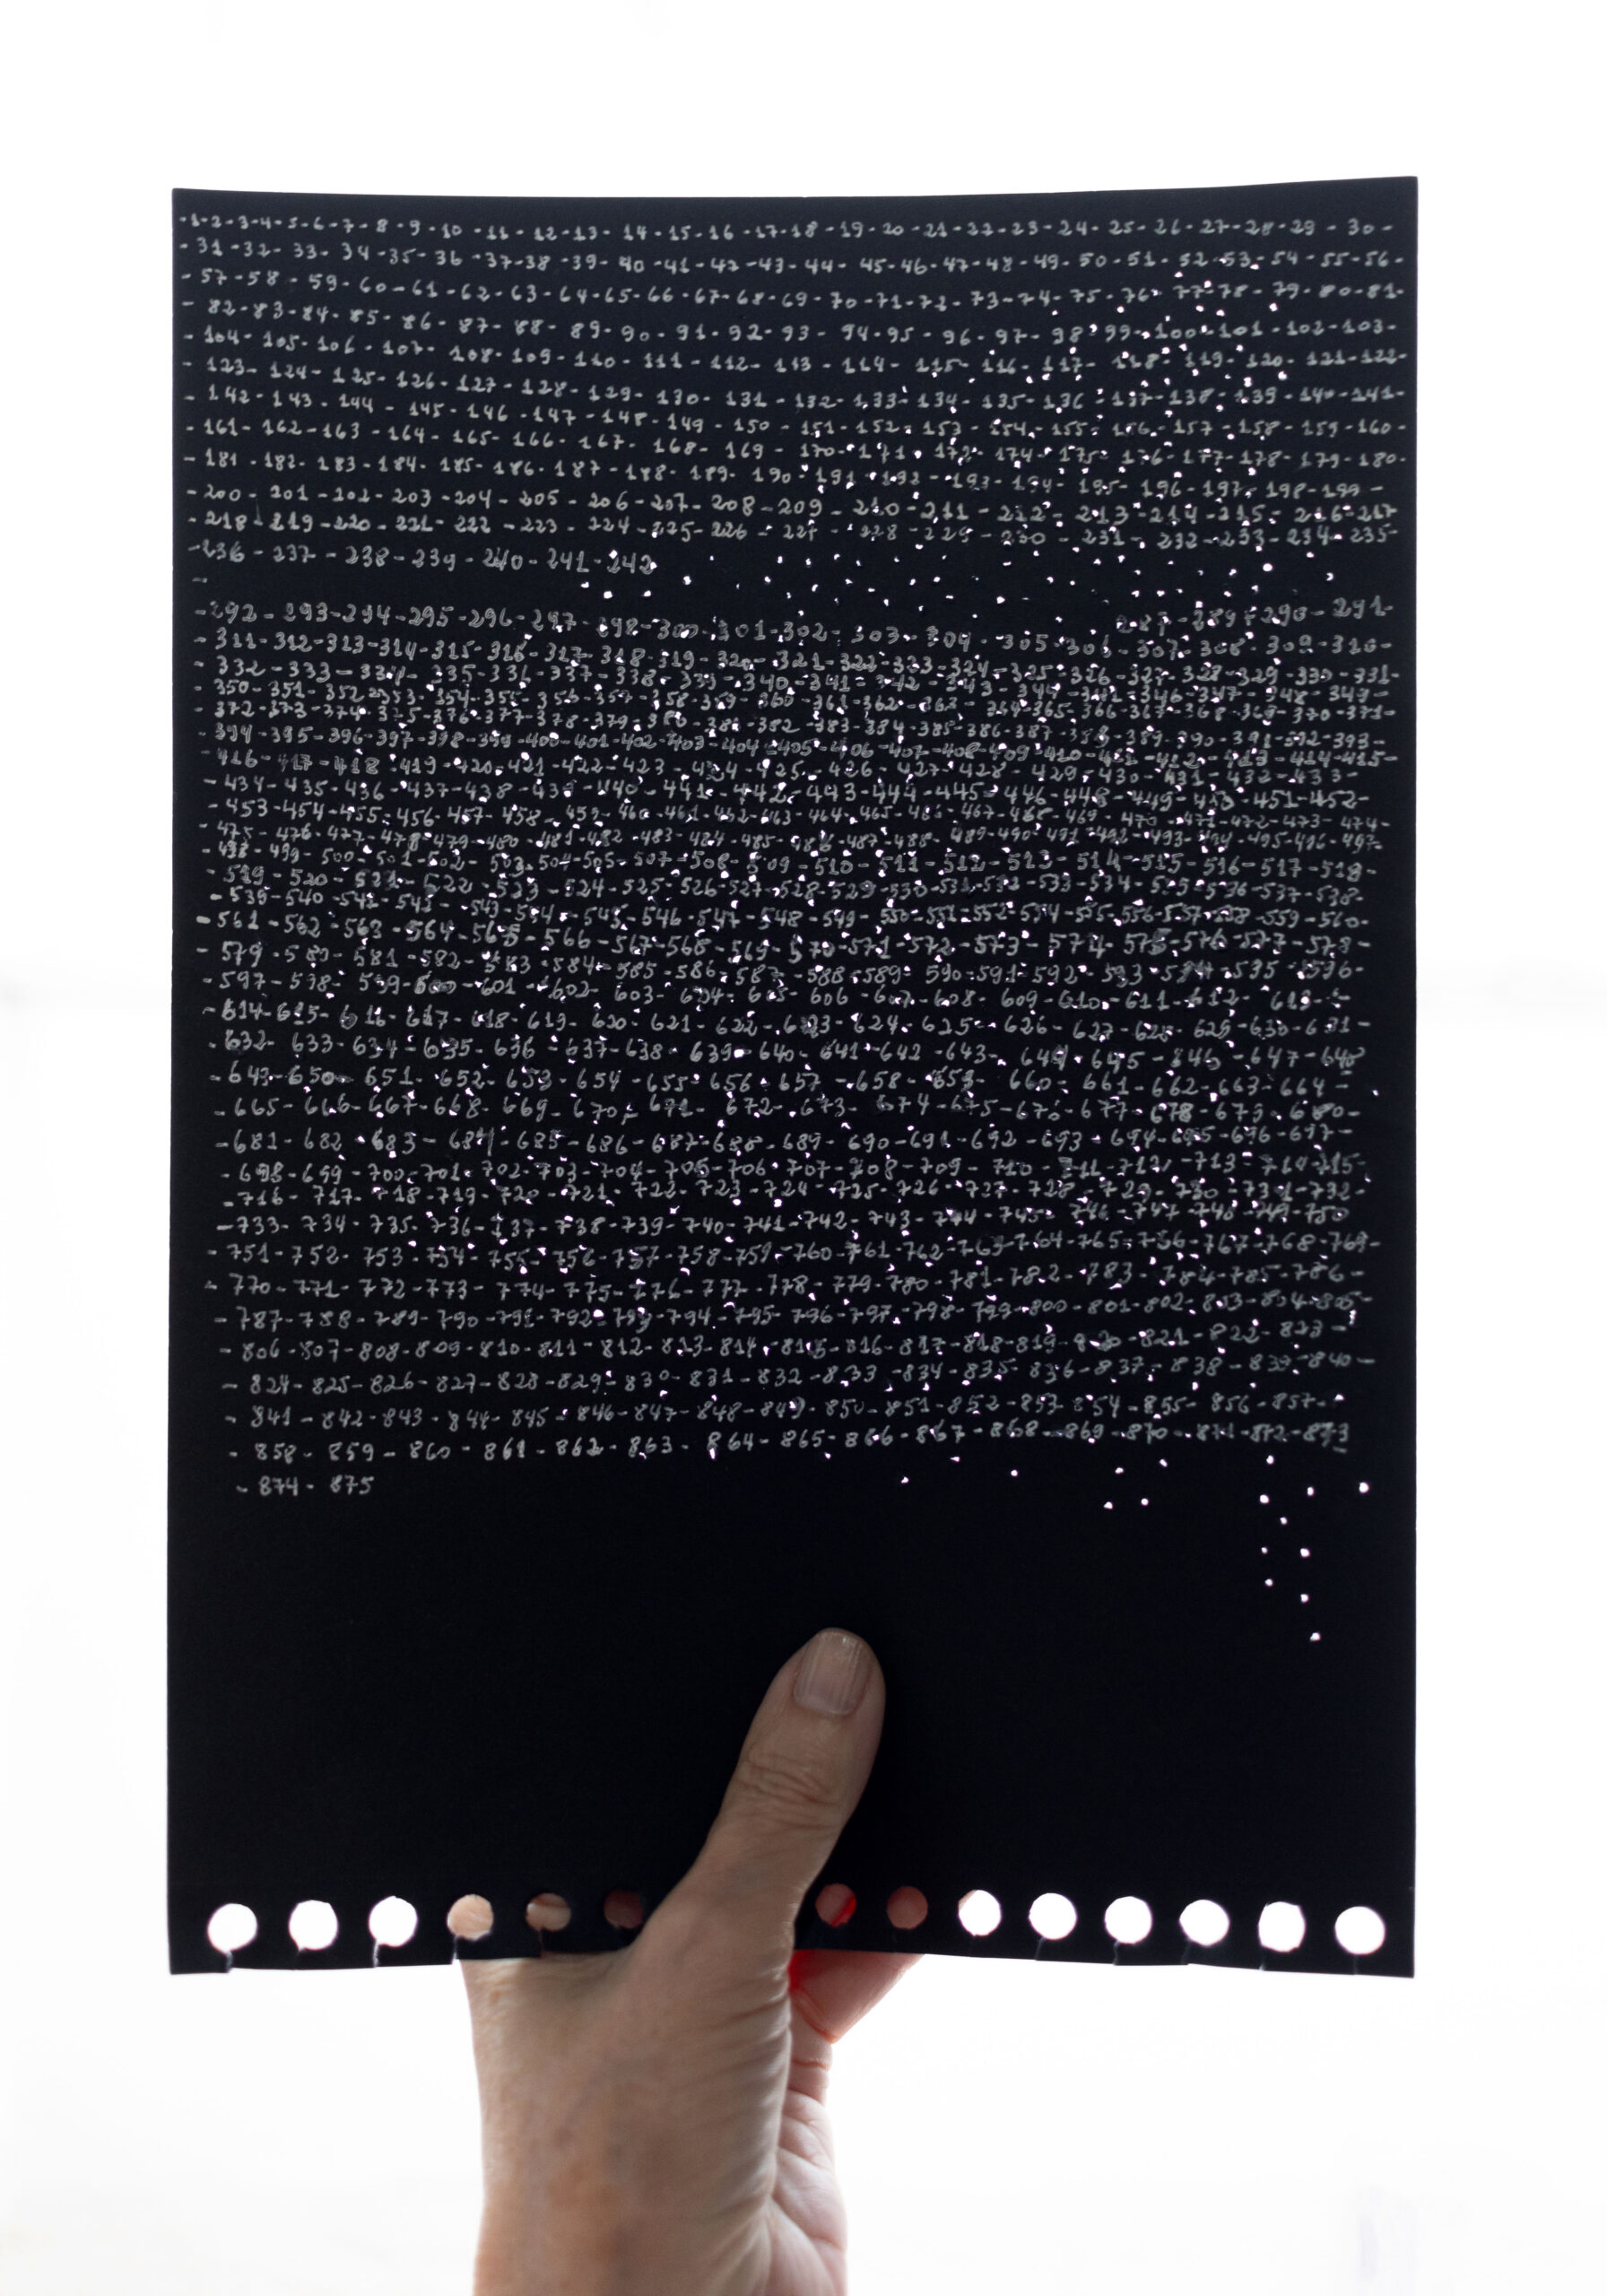 -1-2-3-4-5-6-7-8-9-10-11-12-13-14-15-16-17-18-19-20-21-22-23-24-25-26-27-28-29-30-
-31-32-33-34-35-36-37-38-39-40-41-42-43-44-45-46-47-48-49-50-51-52-53-54-55-56-
-57-58-59-60-61-62-63-64-65-66-67-68-69-70-71-72-73-74-75-76-77-78-79-80-81-
-82-83-84-85-86-87-88-89-90-91-92-93-94-95-96-97-98-99-100-101-102-103-
-104-105-106-107-108-109-110-111-112-113-114-115-116-117-118-119-120-121-122-
-123-124-125-126-127-128-129-130-131-132-133-134-135-136-137-138-139-140-141-
-142-143-144-145-146-147-148-149-150-151-152-153-154-155-156-157-158-159-160-
-161-162-163-164-165-166-167-168-169-170-171-172-174-175-176-177-178-179-180-
-181-182-183-184-185-186-187-188-189-190-191-192-193-194-195-196-197-198-199-
-200-201-202-203-204-205-206-207-208-209-210-211-212-213-214-215-216-217
-218-219-220-221-222-223-224-225-226-227-228-229-230-231-232-233-234-235-
-236-237-238-239-240-241-242
-
287-289-290-291-
-292-293-294-295-296-297-298-300-301-302-303-304-305-306-307-308-309-310-
-311-312-313-314-315-316-317-318-319-320-321-322-323-324-325-326-327-328-329-330-331-
-332-333-334-335-336-337-338-339-340-341-342-343-344-346-347-348-349-
-350-351-352-353-354-355-356-357-358-359-360-361-362-363-364-365-366-367-368-369-370-371-
-372-373-374-375-376-377-378-379-380-381-382-383-384-385-386-387-388-389-390-391-392-393-
-394-395-396-397-398-399-400-401-402-403-404-405-406-407-408-409-410-411-412-413-414-415-
-416-417-418-419-420-421-422-423-424-425-426-427-428-429-430-431-432-433-
-434-435-436-437-438-439-440-441-442-443-444-445-446-448-449-450-451-452-
-453-454-455-456-457-458-459-460-461-462-463-464-465-466-467-468-469-470-471-472-473-474-
-475-476-477-478-479-480-481-482-483-484-485-486-487-488-489-490-491-492-493-494-495-496-497-
-498-499-500-501-502-503-504-505-507-508-509-510-511-512-513-514-515-516-517-518-
-519-520-521-522-523-524-525-526-527-528-529-530-531-532-533-534-535-536-537-538-
-539-540-541-542-543-544-545-546-547-548-549-550-551-552-554-555-556-557-558-559-560-
-561-562-563-564-565-566-567-568-569-570-571-572-573-574-575-576-577-578-
-579-580-581-582-583-584-585-586-587-588-589-590-591-592-593-594-595-596-
-597-598-599-600-601-602-603-604-605-606-607-608-609-610-611-612-613-
-614-615-616-617-618-619-620-621-622-623-624-625-626-627-628-629-630-631-
-632-633-634-635-636-637-638-639-640-641-642-643-644-645-846-647-648
-649-650-651-652-653-654-655-656-657-658-659-660-661-662-663-664-
-665-666-667-668-669-670-671-672-673-674-675-676-677-678-679-680-
-681-682-683-684-685-686-687-688-689-690-691-692-693-694-695-696-697-
-698-699-700-701-702-703-704-705-706-707-708-709-710-711-712-713-714-715-
-716-717-718-719-720-721-722-723-724-725-726-727-728-729-730-731-732-
-733-734-735-736-737-738-739-740-741-742-743-744-745-746-747-748-749-750
-751-752-753-754-755-756-757-758-759-760-761-762-763-764-765-766-767-768-769-
-770-771-772-773-774-775-776-777-778-779-780-781-782-783-784-785-786-
-787-788-789-790-791-792-793-794-795-796-797-798-799-800-801-802-803-804-805-
-806-807-808-809-810-811-812-813-814-815-816-817-818-819-820-821-822-823-
-824-825-826-827-828-829-830-831-832-833-834-835-836-837-838-839-840-
-841-842-843-844-845-846-847-848-849-850-851-852-853-854-855-856-857-
-858-859-860-861-862-863-864-865-866-867-868-869-870-871-872-873
-874-875